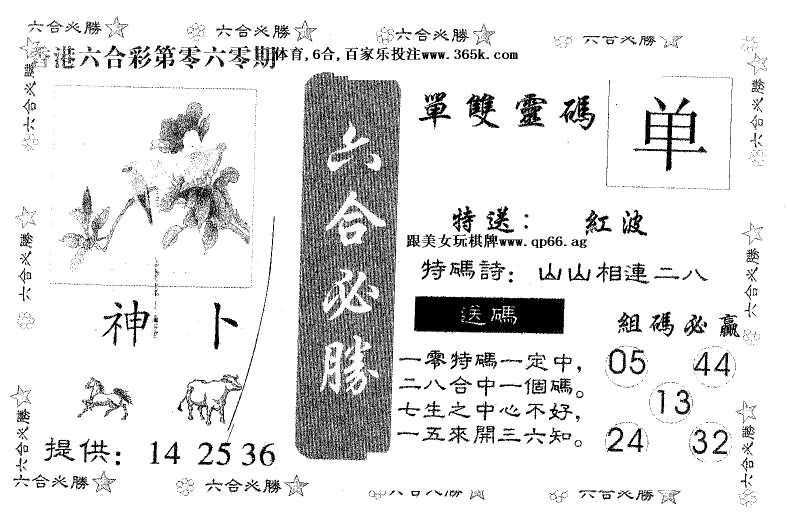 六合必勝 六合必勝 六合必勝 六合必勝
香港六合彩第零六零期体育,6合,百家乐投注www.365k.com
六合必勝
六合必勝
單雙靈碼
单
六合必勝
六合必勝
神卜
提供：14 25 36
六合必勝
特送：紅波
跟美女玩棋牌www.qp66.ag
特碼詩：山山相連二八
送碼
一零特碼一定中,
二八合中一個碼。
七生之中心不好,
一五來開三六知。
組碼必贏
05 44
13
24 32
六合必勝
六合必勝
六合必勝
六合必勝 六合必勝 六合必勝 六合必勝